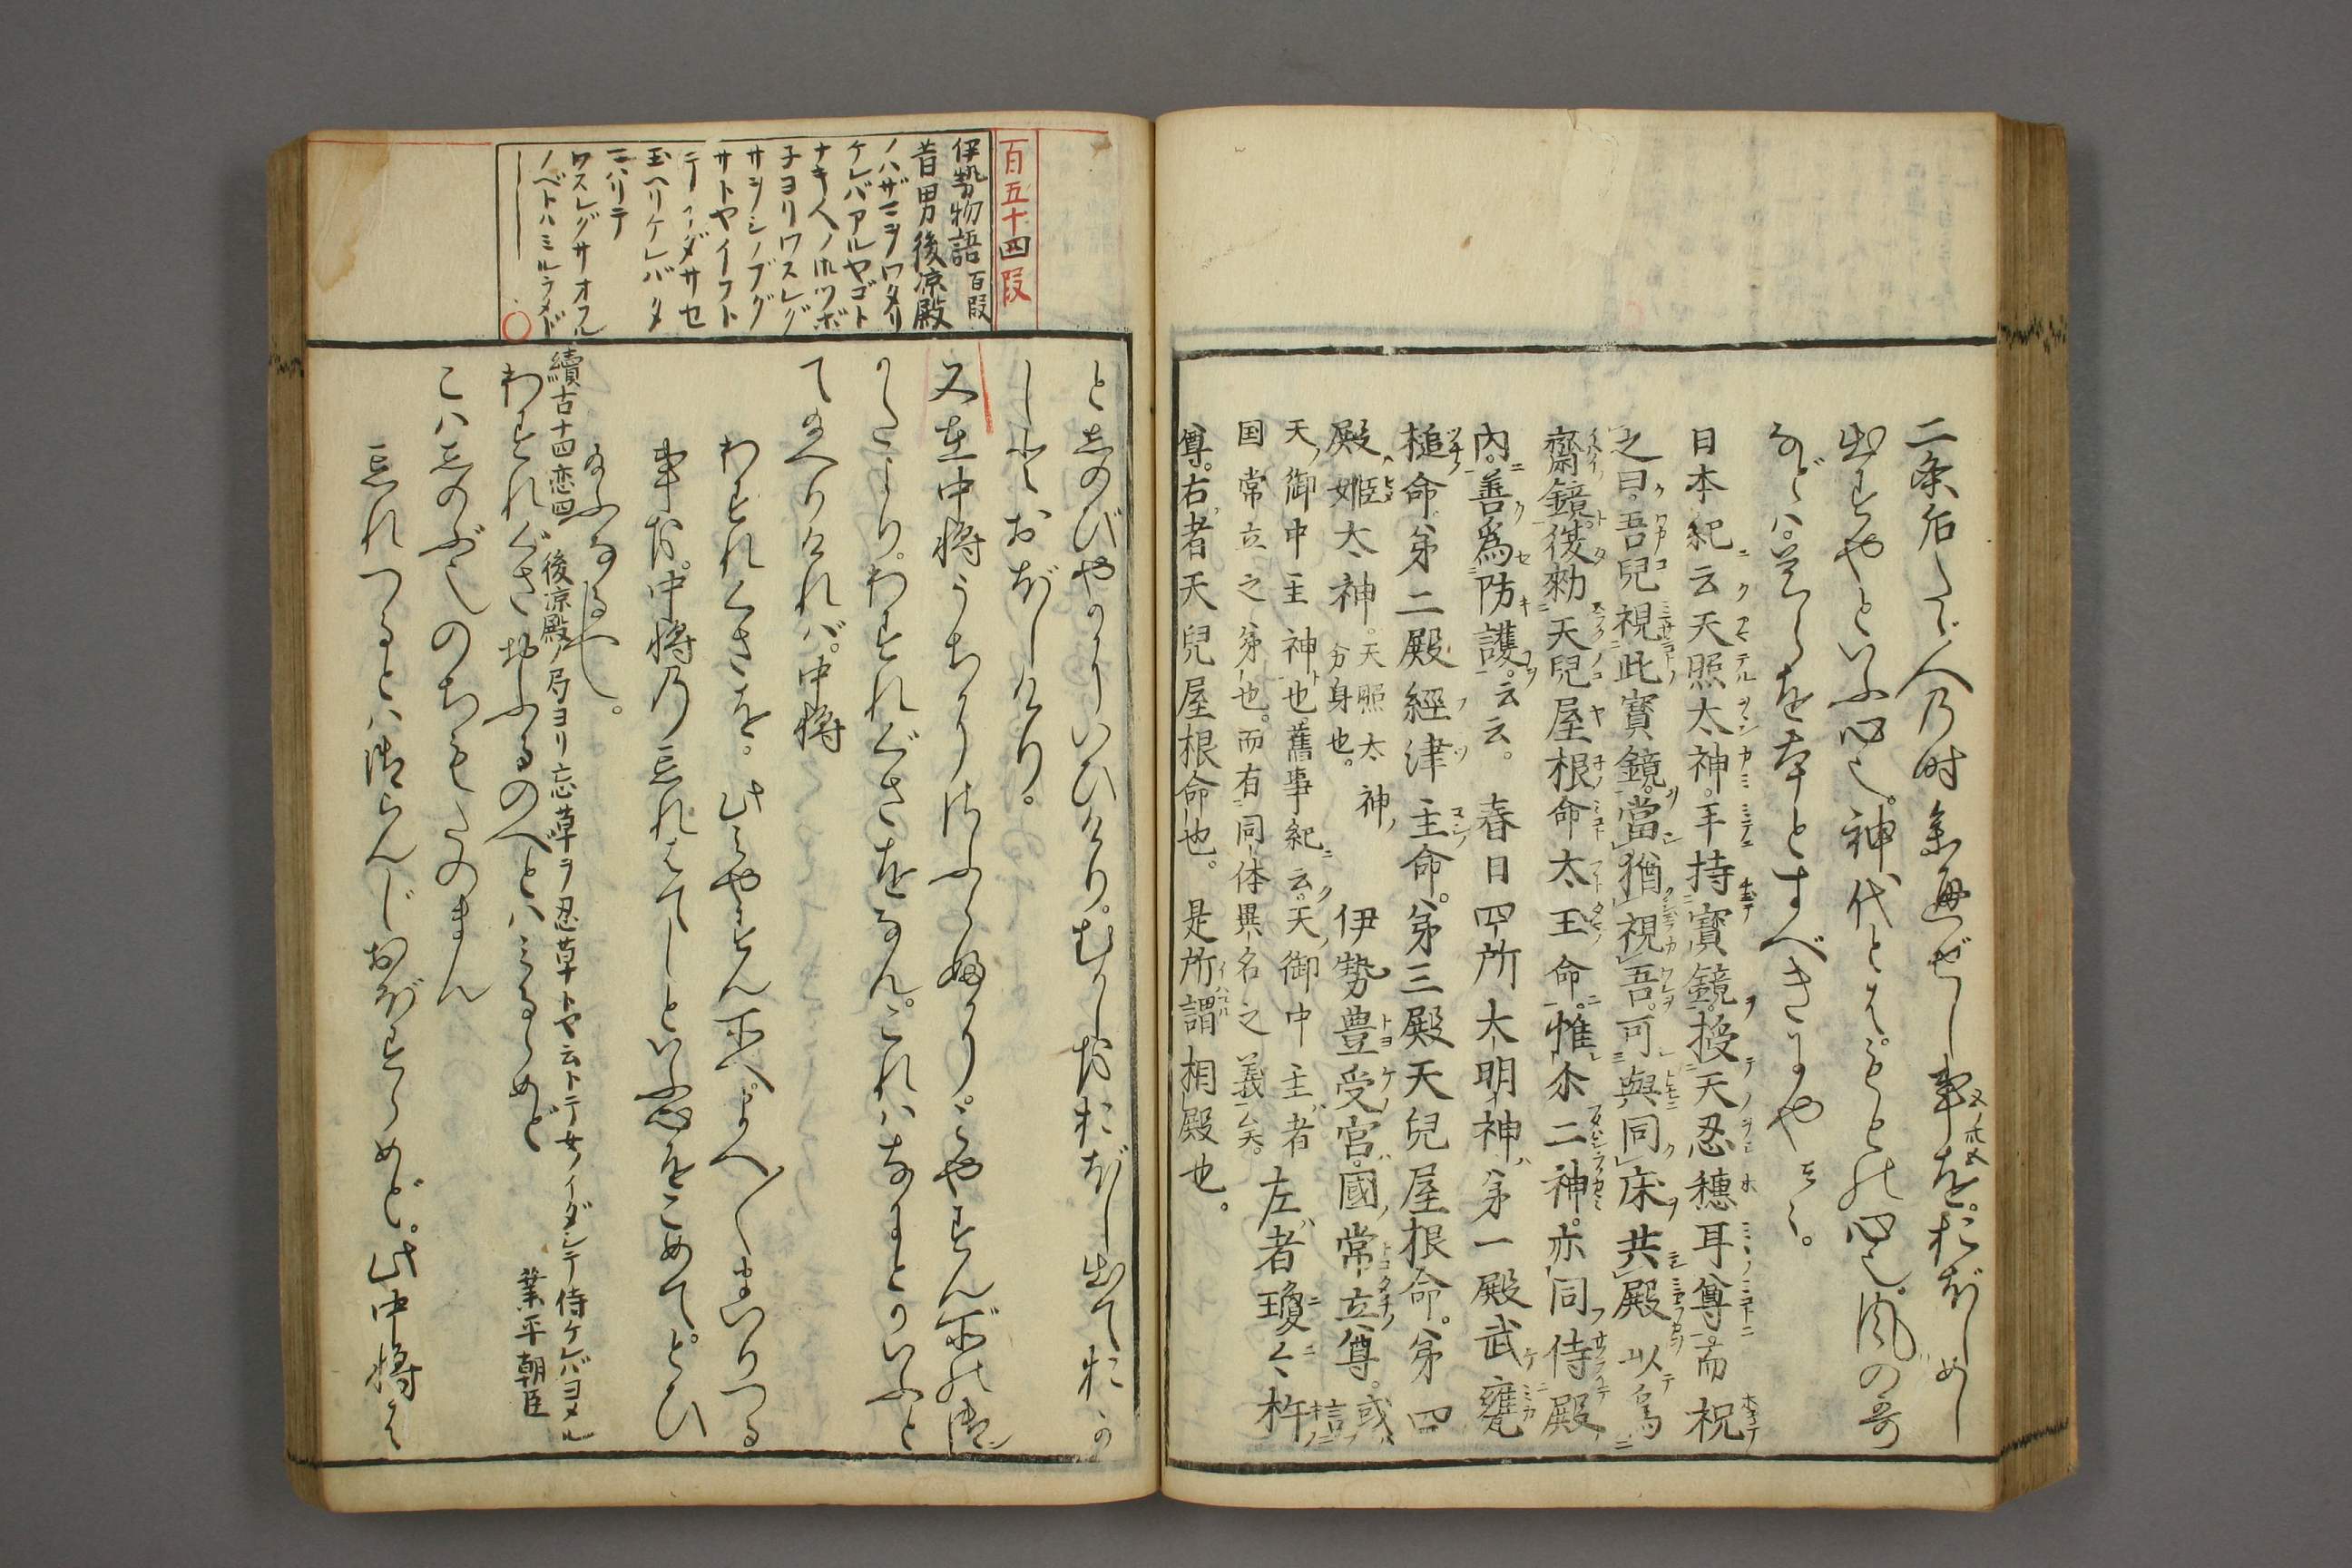 二条后たゞ人乃時密通ぜし事を。おぼしめし
出すやといふ心也。神代とは。もとの心也。此の哥
などは。是らを本とすべきにや云々。
日本紀云天照太神。手持寳鏡。授天忍穗耳尊。而祝
之曰。吾兒視此寳鏡。當猶視吾。可與同床共殿以爲
齋鏡。復勅天兒屋根命太玉命。惟尒二神。亦同侍殿
内。善爲防護。云云。春日四所大明神。第一殿武甕
槌命。第二殿經津主命。第三殿天兒屋根命。第四
殿姫太神。天照太神分身也。 伊勢豊受宮。國常立尊。或
天御中主神也。舊事紀云。天御中主者
国常立之弟也。而有同体異名之義矣。 左者瓊々杵
尊。右者天兒屋根命也。是所謂相殿也。
百五十四段
伊勢物語 百段
昔男後凉殿
ノハザマヲワタリ
ケレバアルヤゴト
ナキ人ノ御ツボ
子ヨリワスレグ
サヲシノブグ
サトヤイフト
テイダサセ
玉ヘリケレバタ
マハリテ
ワスレグサオフル
ノベトハミルラメド
としのびやかにいひけり。むかしおおぼし出ておか
しとおぼしけり。
又在中将うちにさふらふに。みやすん所の御
かたより。わすれぐさをなん。これはなにとかいふと
てたまへりければ。中将
わすれくさを。此みやすん所へ。まへ〳〵まいりつる
事お。中将乃忘れはてしといふ心をこめて。とひ
給ふなるべし。
續古十四恋四 後凉殿ノ局ヨリ忘草ヲ忍草トヤ云トテ女ノイダシテ侍ケレバヨメル
業平朝臣
わすれぐさおふるのべとはみるらめど
こはしのぶ也のちもたのまん
忘れつるとは御らんじおぼすらめど。此中将は